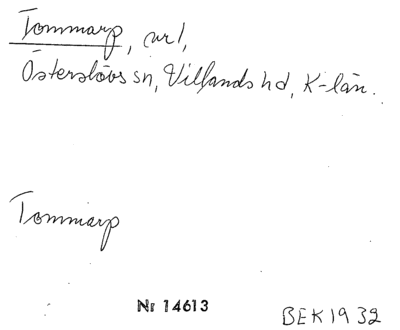 Tommarp, ur l,
Österslövs sn, Villands hd, K-län.
Tommarp
Nr 14613
BEK 1932